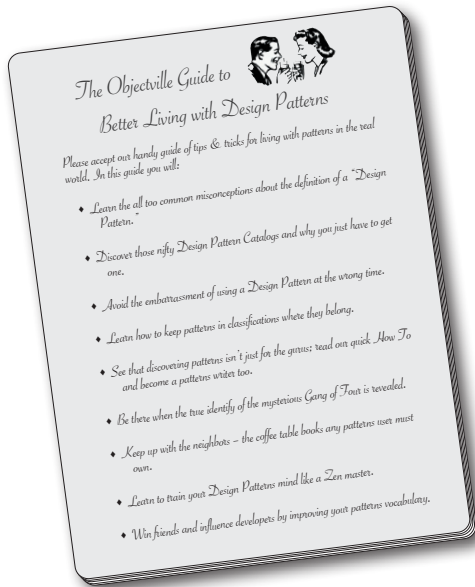 The Objectville Guide to
Better Living with Design Patterns
Please accept our handy guide of tips & tricks for living with patterns in the real
world. In this guide you will:
♦ Learn the all too common misconceptions about the definition of a "Design
Pattern."
♦ Discover those nifty Design Pattern Catalogs and why you just have to get
one.
♦ Avoid the embarrassment of using a Design Pattern at the wrong time.
♦ Learn how to keep patterns in classifications where they belong.
♦ See that discovering patterns isn't just for the gurus; read our quick How To
and become a patterns writer too.
♦ Be there when the true identify of the mysterious Gang of Four is revealed.
♦ Keep up with the neighbors – the coffee table books any patterns user must
own.
♦ Learn to train your Design Patterns mind like a Zen master.
♦ Win friends and influence developers by improving your patterns vocabulary.